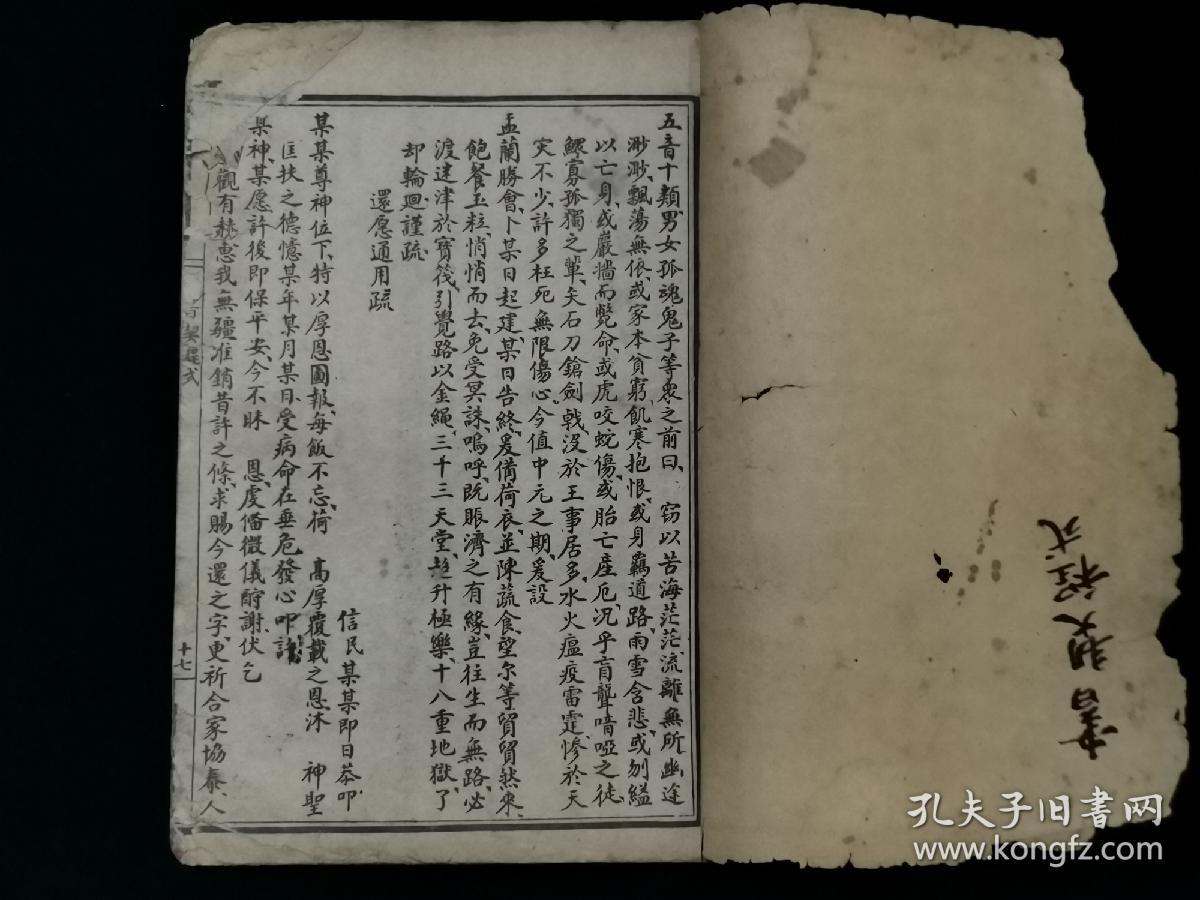 五音十類男女孤魂鬼子等衆之前曰 窃以苦海茫茫流離無所幽途
渺渺飄蕩無依或家本貧窮飢寒抱恨或身羈道路雨雪含悲或刎縊
以亡身或巖墻而斃命或虎咬蛇傷或胎亡產厄況乎盲聾喑啞之徒
鰥寡孤獨之輩矢石刀鎗劍戟沒於王事居多水火瘟疫雷霆慘於天
灾不少許多枉死無限傷心今值中元之期爰設
盂蘭勝會卜某日起建某日告終爰備荷衣並陳蔬食望尔等貿貿然來
飽餐玉粒悄悄而去免受冥誅嗚呼既賑濟之有緣豈往生而無路必
渡迷津於寶筏引覺路以金繩三千三天堂超升極樂十八重地獄了
却輪迴謹疏
還愿通用疏
信民某某即日恭叩
某某尊神位下特以厚恩圖報每飯不忘荷 高厚覆載之恩沐 神聖
匡扶之德憶某年某月某日受病命在垂危發心叩許
某神某愿許後即保平安今不昧 恩虔備微儀酧謝伏乞
觀有赫惠我無疆准銷昔許之條求賜今還之字更祈合家協泰人
契程式
十七
書契程式
孔夫子旧书网
www.kongfz.com